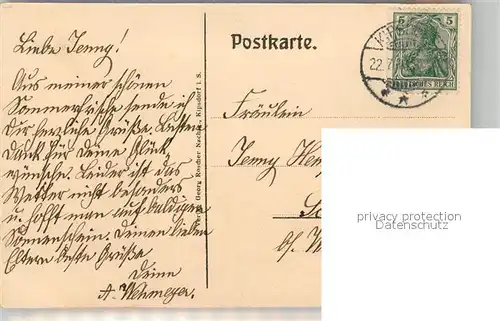 Liebe Jenny!
Aus meiner schönen
Sommerfrische sende ich
Dir herzliche Grüße. Besten
Dank für Deine Glück-
wünsche. Leider ist das
Wetter nicht besonders
u. hofft man auf baldigen
Sonnenschein. Deinen lieben
Eltern beste Grüße
Deine
A. Wehmeyer.
Georg Roscher Nachf., Kipsdorf i. S.
Postkarte.
22.7.
5 5
DEUTSCHES REICH
Fräulein
Jenny
privacy protection
Datenschutz